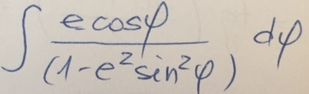 ∫ e cosφ / (1-e²sin²φ) dφ